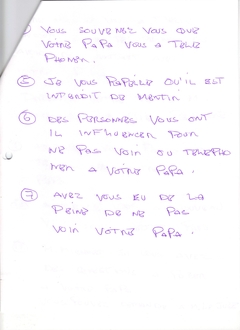 ) VOUS SOUVENEZ VOUS QUE
VOTRE PAPA VOUS A TELE
PHONER.
⑤ JE VOUS RAPPELLE QU'IL EST
INTERDIT DE MENTIR
⑥ DES PERSONNES VOUS ONT
IL INFLUENCER POUR
NE PAS VOIR OU TELEPHO
NER A VOTRE PAPA.
⑦ AVEZ VOUS EU DE LA
PEINE DE NE PAS
VOIR VOTRE PAPA.